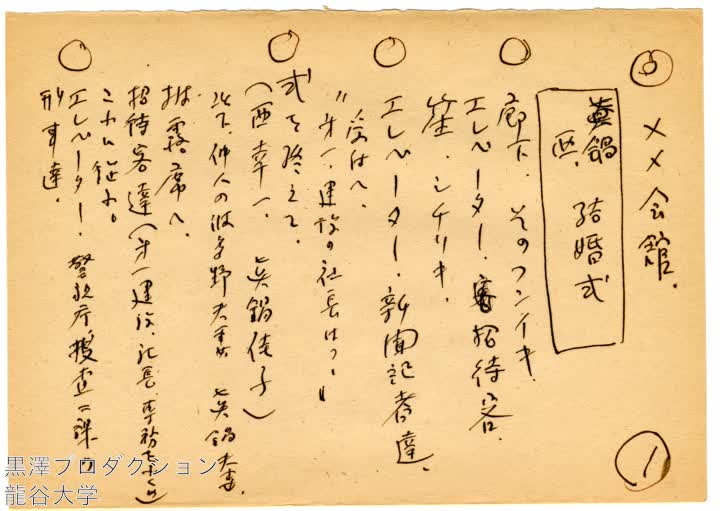 〤〤会館.
眞鍋
西、 結婚式
廊下. そのフンイキ.
エレベーター. 招待客.
笙、シチリキ.
エレベーター. 新聞記者達.
受付へ.
"第一建設の社長は?"
式を終えて.
(西幸一. 眞鍋佳子)
以下. 仲人の波多野夫妻 眞鍋夫妻.
披露席へ.
招待客達(第一建設、社長、専務
これに
エレベーター. 警視庁捜査二課の
刑事達.
1
黒澤プロダクション
龍谷大学